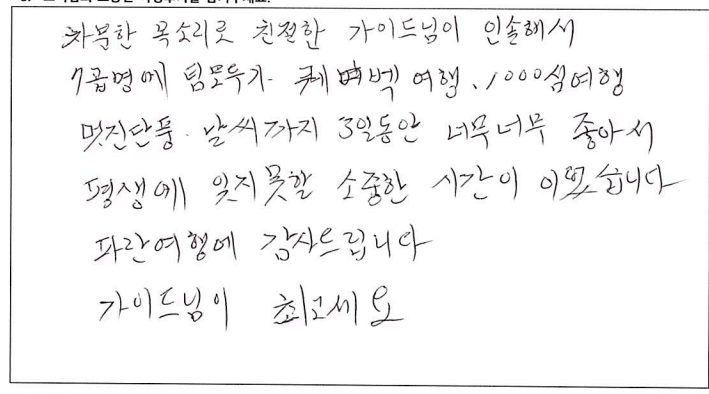 차분한 목소리로 친절한 가이드님이 인솔해서
7곱명에 팀모두가. 퀘벡 여행、1000섬여행
멋진단풍. 날씨까지 3일동안 너무너무 좋아서
평생에 잊지못할 소중한 시간이 이였습니다
파란여행에 감사드립니다
가이드님이 최고세요